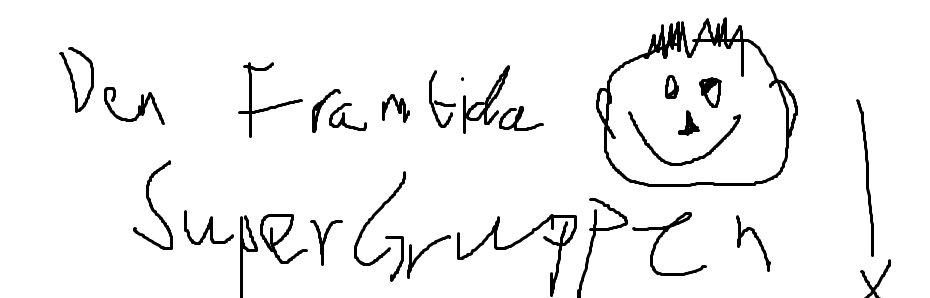 Den Framtida
SuperGruppen!